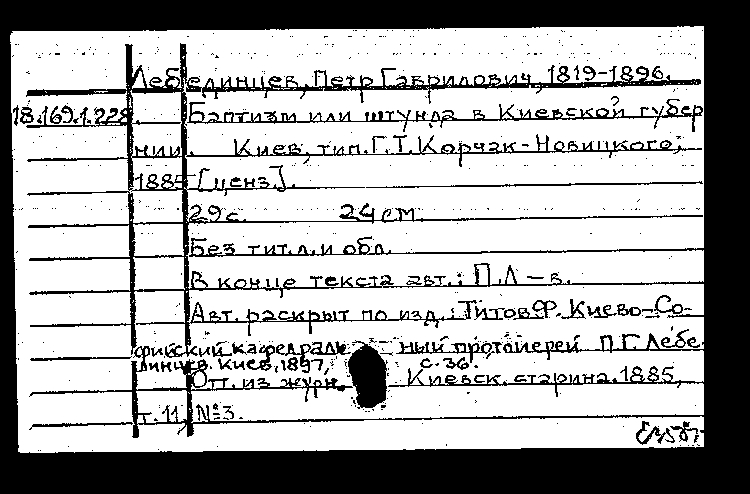 Лебединцев, Петр Гаврилович, 1819-1896.
18.169.1.228. Баптизм или штунда в Киевской губер
нии. Киев, тип. Г.Т. Корчак-Новицкого,
1885 [ценз.].
29 с. 24 см.
Без тит. л. и обл.
В конце текста авт.: П.Л-в.
Авт. раскрыт по изд.: Титов Ф. Киево-Со-
фийский кафедраль ный протоиерей П.Г. Лебе-
динцев. Киев, 1897, с. 36.
Отт. из журн. Киевск. старина. 1885,
т. 11, № 3.